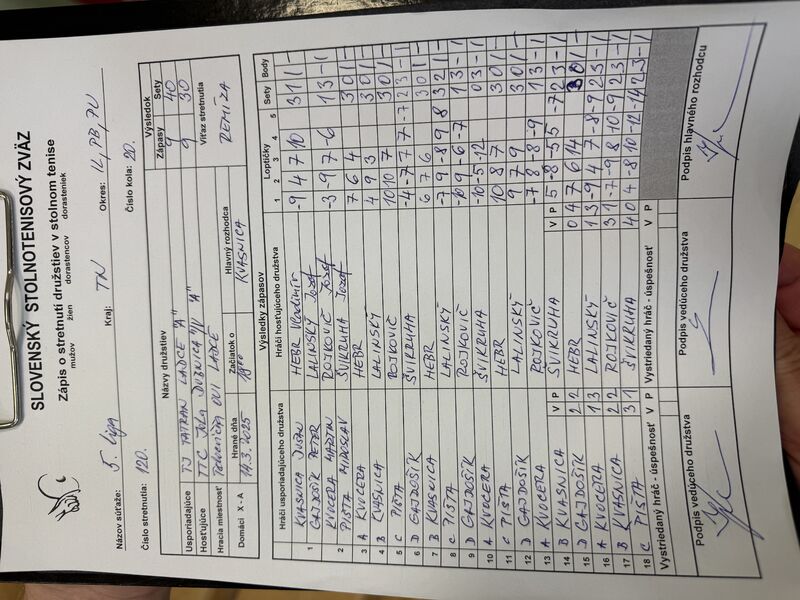 SLOVENSKÝ STOLNOTENISOVÝ ZVÄZ
Zápis o stretnutí družstiev v stolnom tenise
mužov žien dorastencov dorasteniek
Názov súťaže: 5. liga Kraj: TN Okres: IL, PB, PU
Číslo stretnutia: 120. Číslo kola: 20.
Názvy družstiev Výsledok
Zápasy Sety
Usporiadajúce TJ TATRAN LADCE "A" 9 40
Hosťujúce TTC DUBNICA "A" 9 30
Hracia miestnosť LADCE Víťaz stretnutia
Domáci X - A Hrané dňa Začiatok o Hlavný rozhodca REMÍZA
14.3.2025 KVASNICA
Výsledky zápasov
Hráči usporiadajúceho družstva Hráči hosťujúceho družstva Loptičky Sety Body
1 2 3 4 5
KVASNICA DUŠAN HEBR Vladimír
1 GAJDOŠÍK PETER LALINSKÝ Jozef -9 4 7 10 3 1 1 -
KVOČERA MARTIN ROJKOVIČ Jozef
2 PIŠTA MIROSLAV ŠVIKRUHA Jozef -3 -9 7 -6 1 3 - 1
3 A KVOČERA HEBR 7 6 4 3 0 1 -
4 B KVASNICA LALINSKÝ 4 9 3 3 0 1 -
5 C PIŠTA ROJKOVIČ 10 10 7 3 0 1 -
6 D GAJDOŠÍK ŠVIKRUHA -4 -7 7 7 -7 2 3 - 1
7 B KVASNICA HEBR 6 7 6 3 0 1 -
8 C PIŠTA LALINSKÝ -7 9 -8 9 8 3 2 1 -
9 D GAJDOŠÍK ROJKOVIČ -10 9 -6 -7 1 3 - 1
10 A KVOČERA ŠVIKRUHA -10 -5 -12 0 3 - 1
11 C PIŠTA HEBR 10 8 7 3 0 1 -
12 D GAJDOŠÍK LALINSKÝ 9 7 9 3 0 1 -
13 A KVOČERA ROJKOVIČ -7 8 -8 -9 1 3 - 1
14 B KVASNICA V P ŠVIKRUHA V P 5 -8 -5 5 -7 2 3 - 1
15 D GAJDOŠÍK 2 2 HEBR 0 4 7 6 14 3 0 1 -
16 A KVOČERA 1 3 LALINSKÝ 1 3
17 B KVASNICA 2 2 ROJKOVIČ 3 1
18 C PIŠTA 3 1 ŠVIKRUHA 4 0
Vystriedaný hráč - úspešnosť V P Vystriedaný hráč - úspešnosť V P
Podpis vedúceho družstva Podpis vedúceho družstva Podpis hlavného rozhodcu